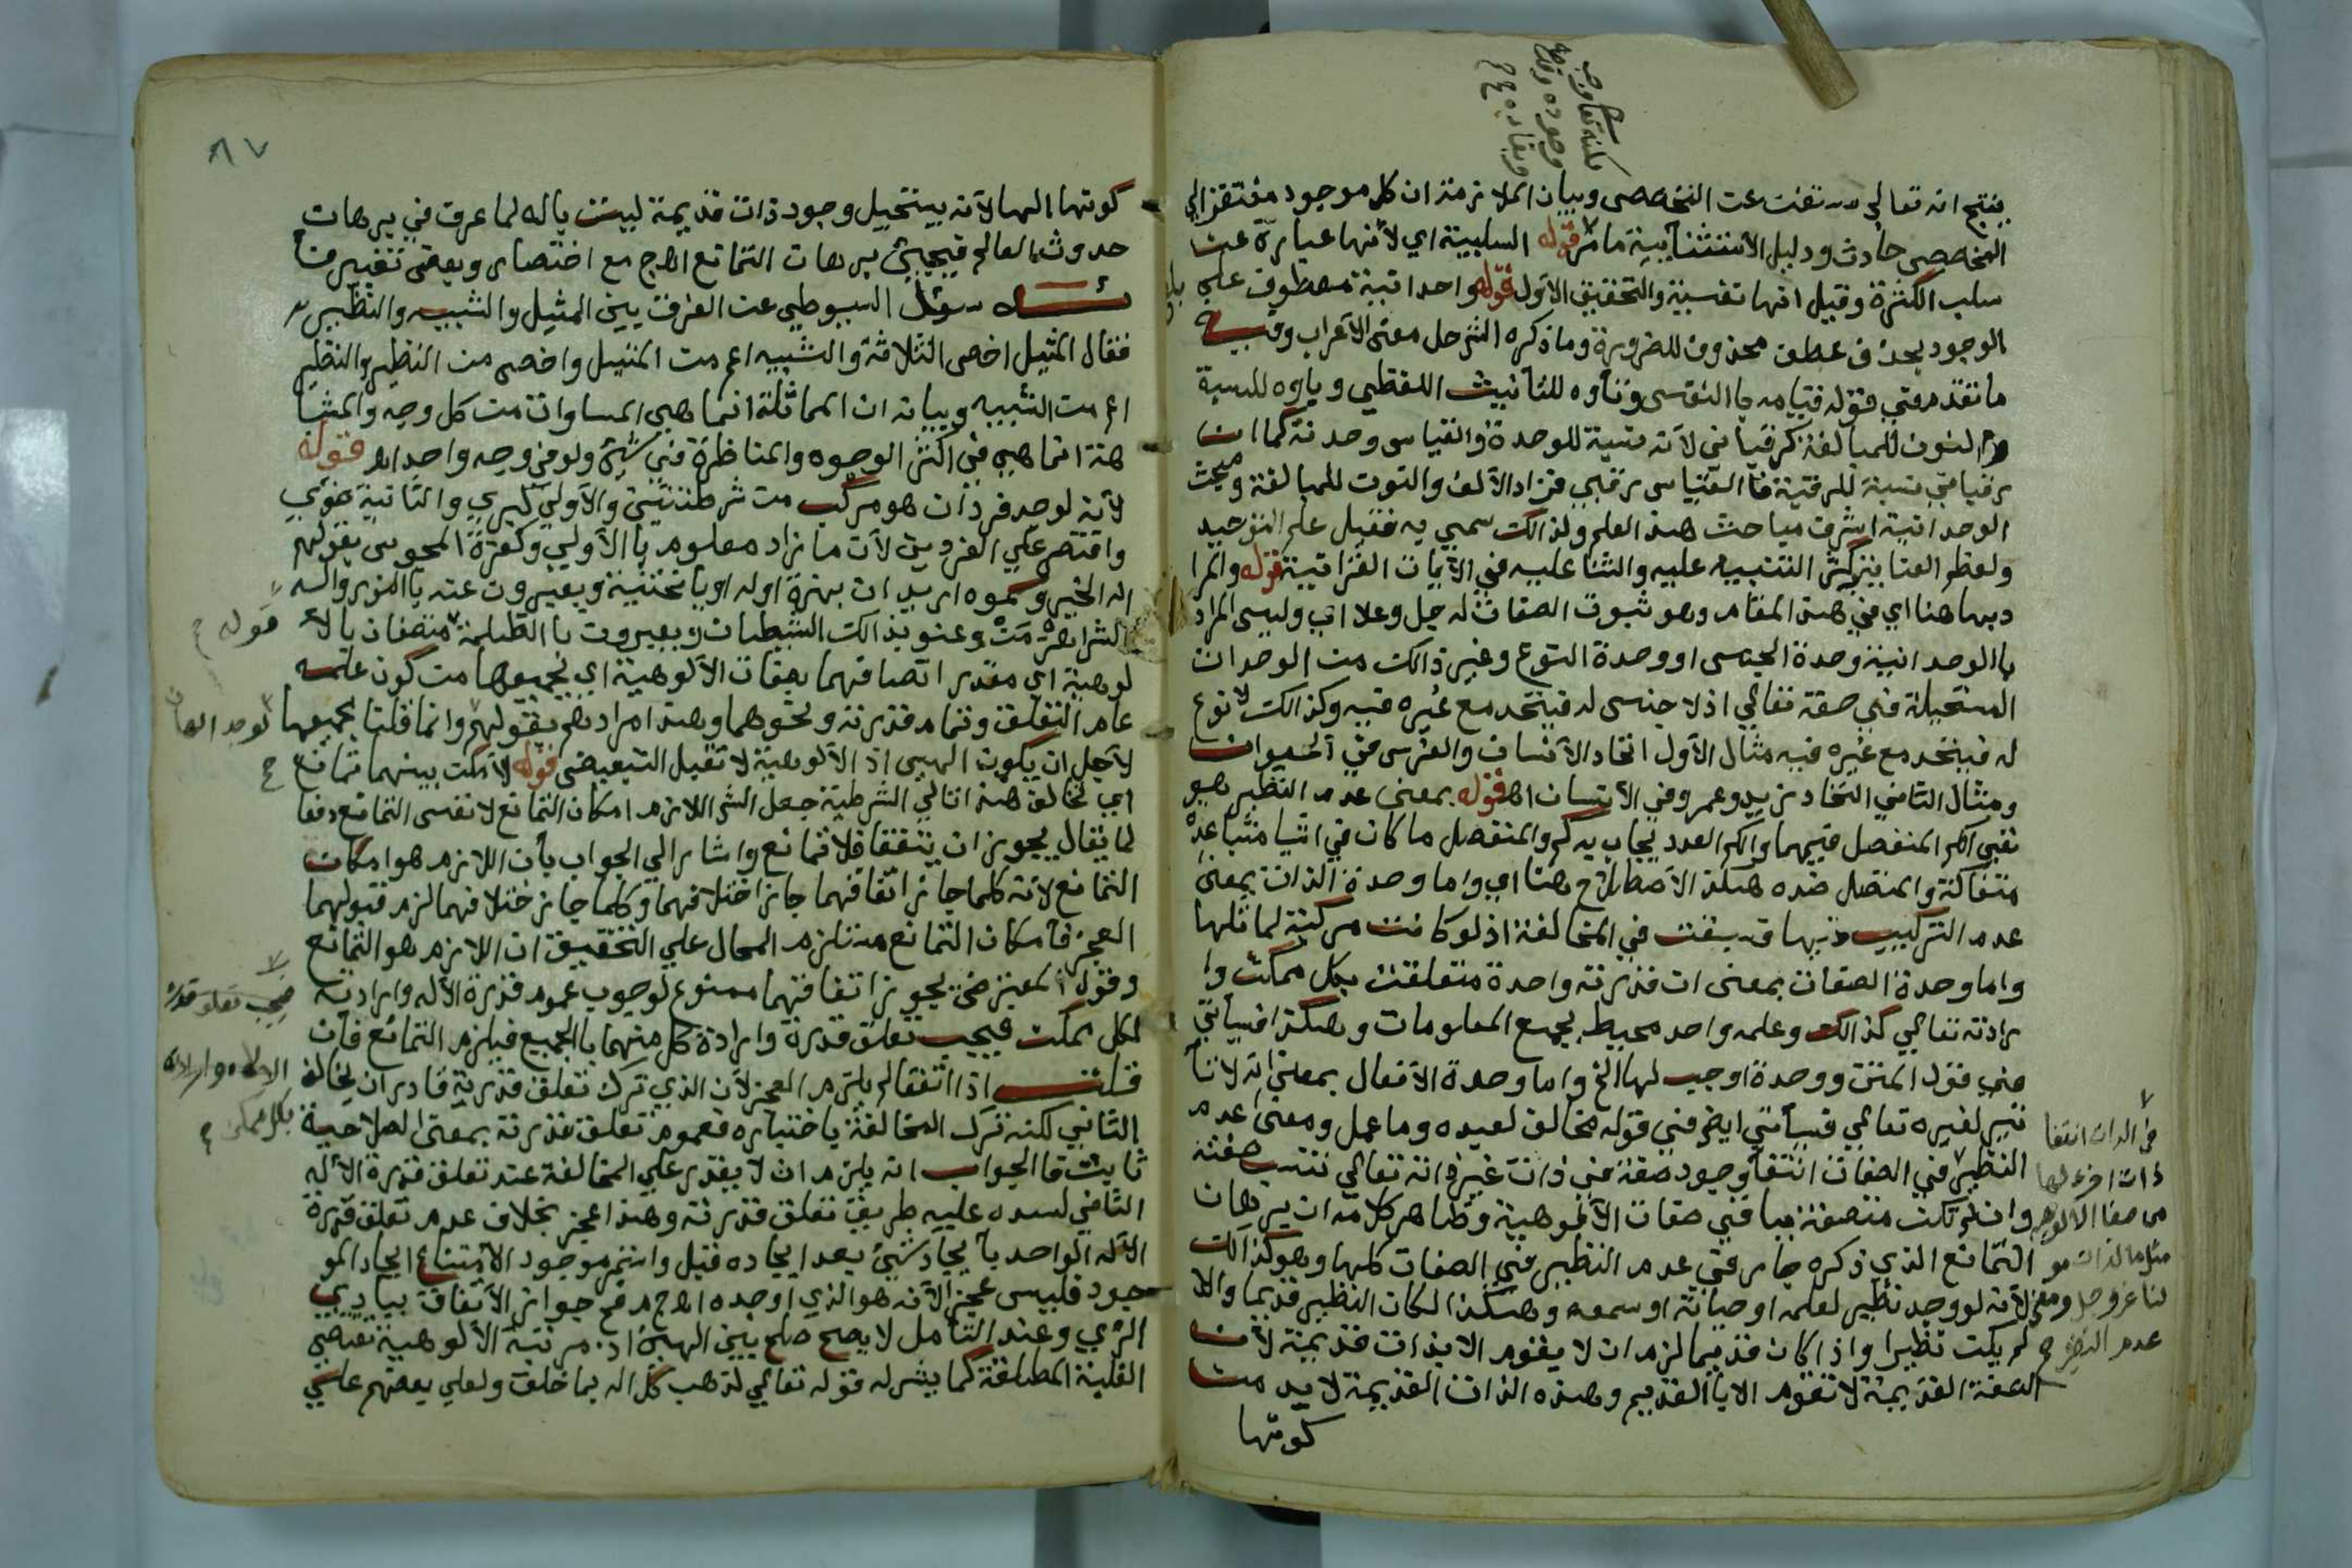 ينتج انه تعالى مستغن عن المخصص وبيان الملازمة ان كل موجود مفتقر الى
المخصص حادث ودليل الاستثنائية ما مر قوله السلبية اي لأنها عبارة عن
سلب الكثرة وقيل انها نفسية والتحقيق الاول قوله واحدانية معطوف على
الوجود بحذف عطف محذوف للضرورة وما ذكره الش حل معنى لا اعراب
ما تقدم في قوله قيامه بالنفس وتاوه للتأنيث اللفظي وياوه للنسبة
والنون للمبالغة كرقباني لانه نسبة للوحدة والقياس وحدية كما ان
رقباني نسبة للرقبة فالقياس رقبي فزاد الالف والنون للمبالغة ومبحث
الوحدانية اشرف مباحث هذا العلم ولذالك سمي به فقيل علم التوحيد
ولعظم العناية كثر التنبيه عليه والثنا عليه في الآيات القرآنية قوله والمرا
د بها هنا اي في هذا المقام وهو ثبوت الصفات له جل وعلا اي وليس المراد
بالوحدانية وحدة الجنس او وحدة النوع وغير ذالك من الوحدات
المستحيلة في صفة تعالى اذ لا جنس له فيتحد مع غيره فيه وكذالك لا نوع
له فيتحد مع غيره فيه مثال الاول اتحاد الانسان والفرس في الحيوان
ومثال الثاني اتحاد زيد وعمرو في الانسان اه قوله بمعنى عدم النظير هو
نفي الكم المنفصل فيهما والكم العدد يجاب به كم والمنفصل ما كان في اشيا متباعدة
متفاكة والمتصل ضده هكذا الاصطلاح هنا اي واما وحدة الذات بمعنى
عدم التركيب فيها قد سبقت في المخالفة اذ لو كانت مركبة لماثلها
واما وحدة الصفات بمعنى ان قدرته واحدة متعلقة بكل ممكن وا
رادته تعالى كذالك وعلمه واحد محيط بجميع المعلومات وهكذا فسيأتي
في قول المتن ووحدة اوجب لها الخ واما وحدة الافعال بمعنى انه لا تأ
ثير لغيره تعالى فسيأتي ايض في قوله فخالق لعبده وما عمل ومعنى عدم
النظير في الصفات انتفا وجود صفة في ذات غير ذاته تعالى تشبه صفته
وان لم تكن متصفة بباقي صفات الالوهية وظاهر كلامه ان برهان
التمانع الذي ذكره جار في عدم النظير في الصفات كلها وهو كذالك
لأنه لو وجد نظير لعلمه او حياته او سمعه وهكذا لكان النظير قديما والا
لم يكن نظيرا واذا كان قديما لزم ان لا يقوم الا بذات قديمة لأن
الصفة القديمة لا تقوم الا بالقديم وهذه الذات القديمة لا بد من
كونها
في الذات انتفا
ذات اخرى لها
من صفات الالوهية
مثل ما لذات مو
لنا عز وجل ومعنى
عدم النظير ح
٨٧
كونها الها لأنه يستحيل وجود ذات قديمة ليست باله لما عرف في برهان
حدوث العالم فيجيئ برهان التمانع اه ج مع اختصار وبعض تغيير
سئل السيوطي عن الفرق بين المثيل والشبيه والنظير
فقال المثيل اخص الثلاثة والشبيه اعم من المثيل واخص من النظير والنظير
اعم من الشبيه وبيانه ان المماثلة انما هي المساوات من كل وجه والمشا
بهة انما هي في اكثر الوجوه والمناظرة في شيئ ولو في وجه واحد اه قوله
لأنه لو وجد فردان هو مركب من شرطيتين والاولى كبرى والثانية
واقتصر على الفردين لأن ما زاد معلوم بالأولى وكفرة المجوس بقولهم
اله الخير وسموه
الشر اهرمن وعنو بذالك الشيطان ويعبرون بالظلمة متصفان بالأ
لوهية اي مقدر اتصافهما بصفات الالوهية اي بجميعها من كون علمه
عام التعلق وتمام قدرته ونحوهما وهذا مرادهم بقولهم وانما قلنا بجميعها
لأجل ان يكون الهين اذ الالوهية لا تقبل التبعيض قوله لأمكن بينهما تمانع
اي تخالف هذا تالي الشرطية جعل الش اللازم امكان التمانع لا نفس التمانع دفعا
لما يقال يجوز ان يتفقا فلا تمانع واشار الى الجواب بأن اللازم هو امكان
التمانع لأنه كلما جاز اتفاقهما جاز اختلافهما وكلما جاز ختلافهما لزم قبولهما
العجز فامكان التمانع مستلزم المحال على التحقيق ان اللازم هو التمانع
وقول المعترض يجوز اتفاقهما ممنوع لوجوب عموم قدرة الأله وارادته
لكل ممكن فيجب تعلق قدرة وارادة كل منهما بالجميع فيلزم التمانع فان
قلت اذا اتفقا لم يلزم العجز لأن الذي ترك تعلق قدرته قادر ان يخالف
الثاني لكنه ترك المخالفة باختياره فعموم تعلق قدرته بمعنى الصلاحية
ثابت فالجواب انه يلزم ان لا يقدر على المخالفة عند تعلق قدرة الأله
الثاني لسده عليه طريق تعلق قدرته وهذا عجز بخلاف عدم تعلق قدرة
الاله الواحد بأيجاد شيئ بعد ايجاده قبل واستمر موجود الامتناع ايجاد المو
جود فليس عجز لأنه هو الذي اوجده اه ج م في جواز الاتفاق ببادي
الرئي وعند التأمل لا يصح صلح بين الهين اذ مرتبة الألوهية تقتضي
الغلبة المطلقة كما يشير له قوله تعالى لذهب كل اله بما خلق ولعلى بعضهم على
قوله ح
لو وجد الهان
ح
فيجب تعلق قدرة
الاله وارادته
بكل ممكن ح